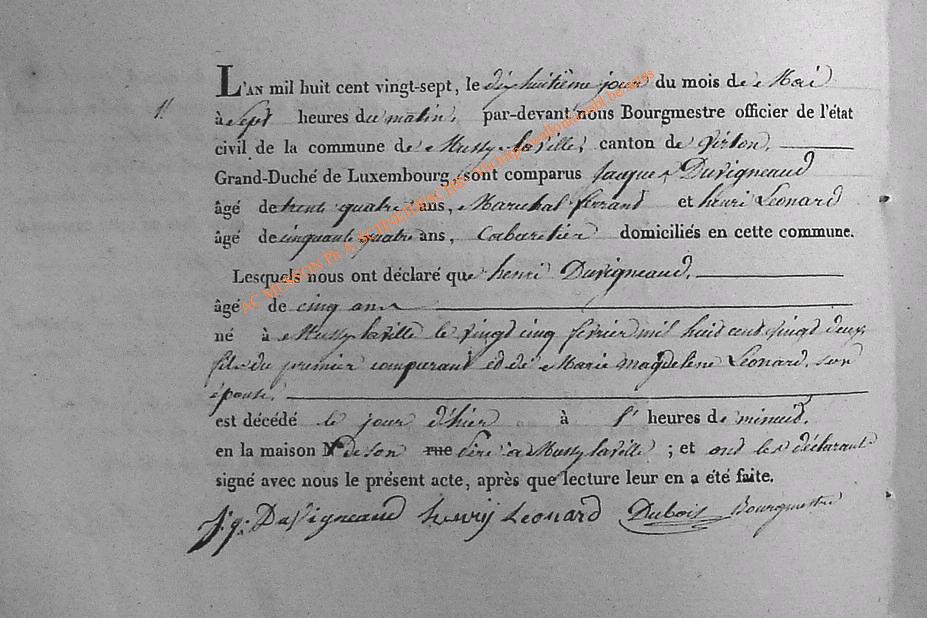 L'AN mil huit cent vingt-sept, le dix huitième jour du mois de Mai
à sept heures du matin, par-devant nous Bourgmestre officier de l'état
civil de la commune de Mussy laville, canton de Virton,
Grand-Duché de Luxembourg, sont comparus Jacques Duvigneaud
âgé de trente quatre ans, Marechal ferrant et henri Léonard
âgé de cinquante quatre ans, Cabaretier domiciliés en cette commune.
Lesquels nous ont déclaré que henri Duvigneaud,
âgé de cinq ans
né à Mussy laville le vingt cinq fevrier mil huit cent vingt deux,
fils du premier comparant et de Marie Magdeleine Léonard, son
épouse.
est décédé le jour d'hier à heures de minuit,
en la maison N° de son rue Père à Mussy laville ; et ont les déclarants
signé avec nous le présent acte, après que lecture leur en a été faite.
j. q. Duvigneaud henry Leonard Dubois Bourgmestre
AC MUSSON